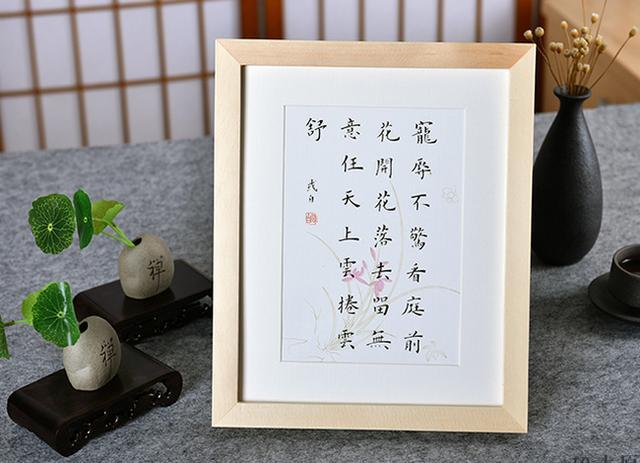 寵辱不驚看庭前
花開花落去留無
意任天上雲捲雲
舒
禪
禪